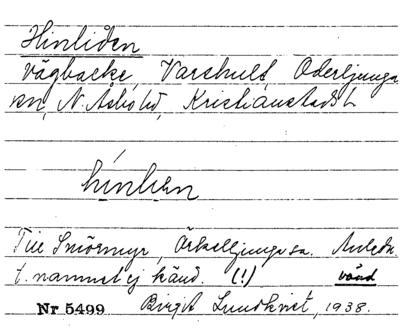 Hinliden
vägbacke, Varshult, Oderljunga
sn, N. Åsbo hd, Kristianstads l.
hinlien
Till Smörmyr, Örkelljunga sn. Anledn.
t. namnet ej känd. (!) vänd
Nr 5499 Birgit Lundkvist, 1938.